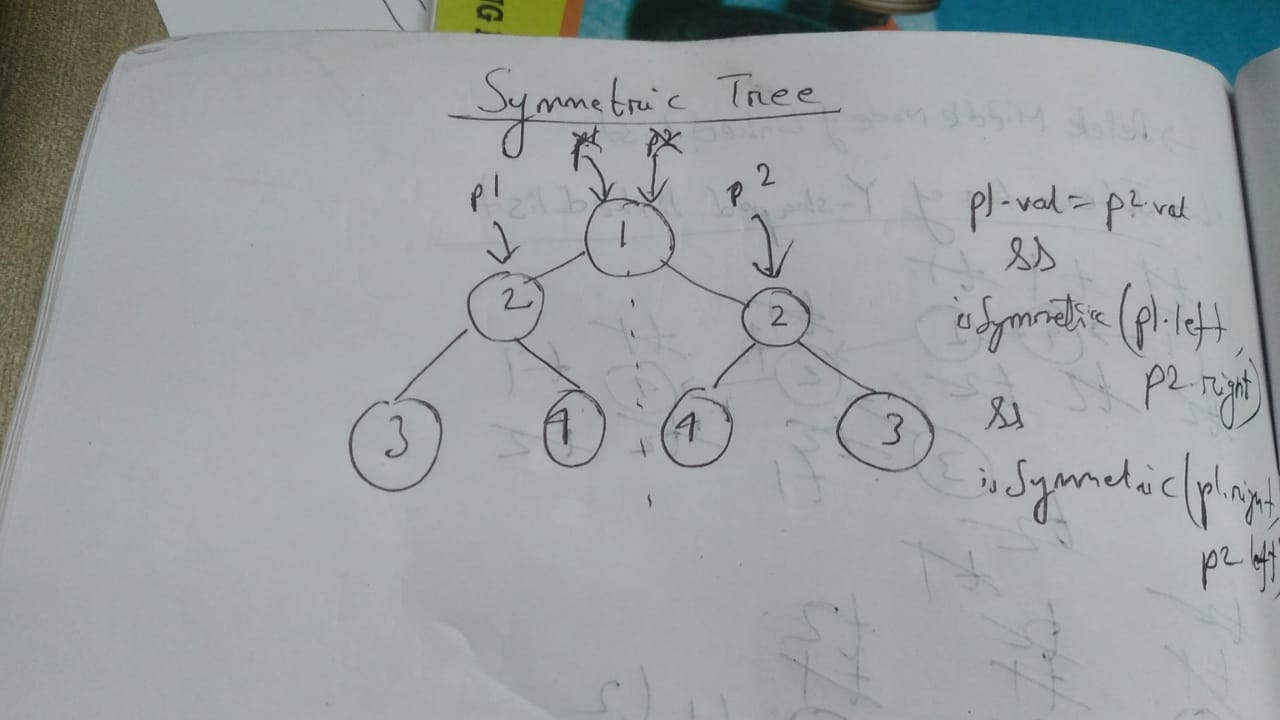 NG
Symmetric Tree
p1 p2
p1 p2
1
2 2
3 4 4 3
p1.val = p2.val
&&
isSymmetric (p1.left,
p2.right)
&&
isSymmetric (p1.right,
p2.left)